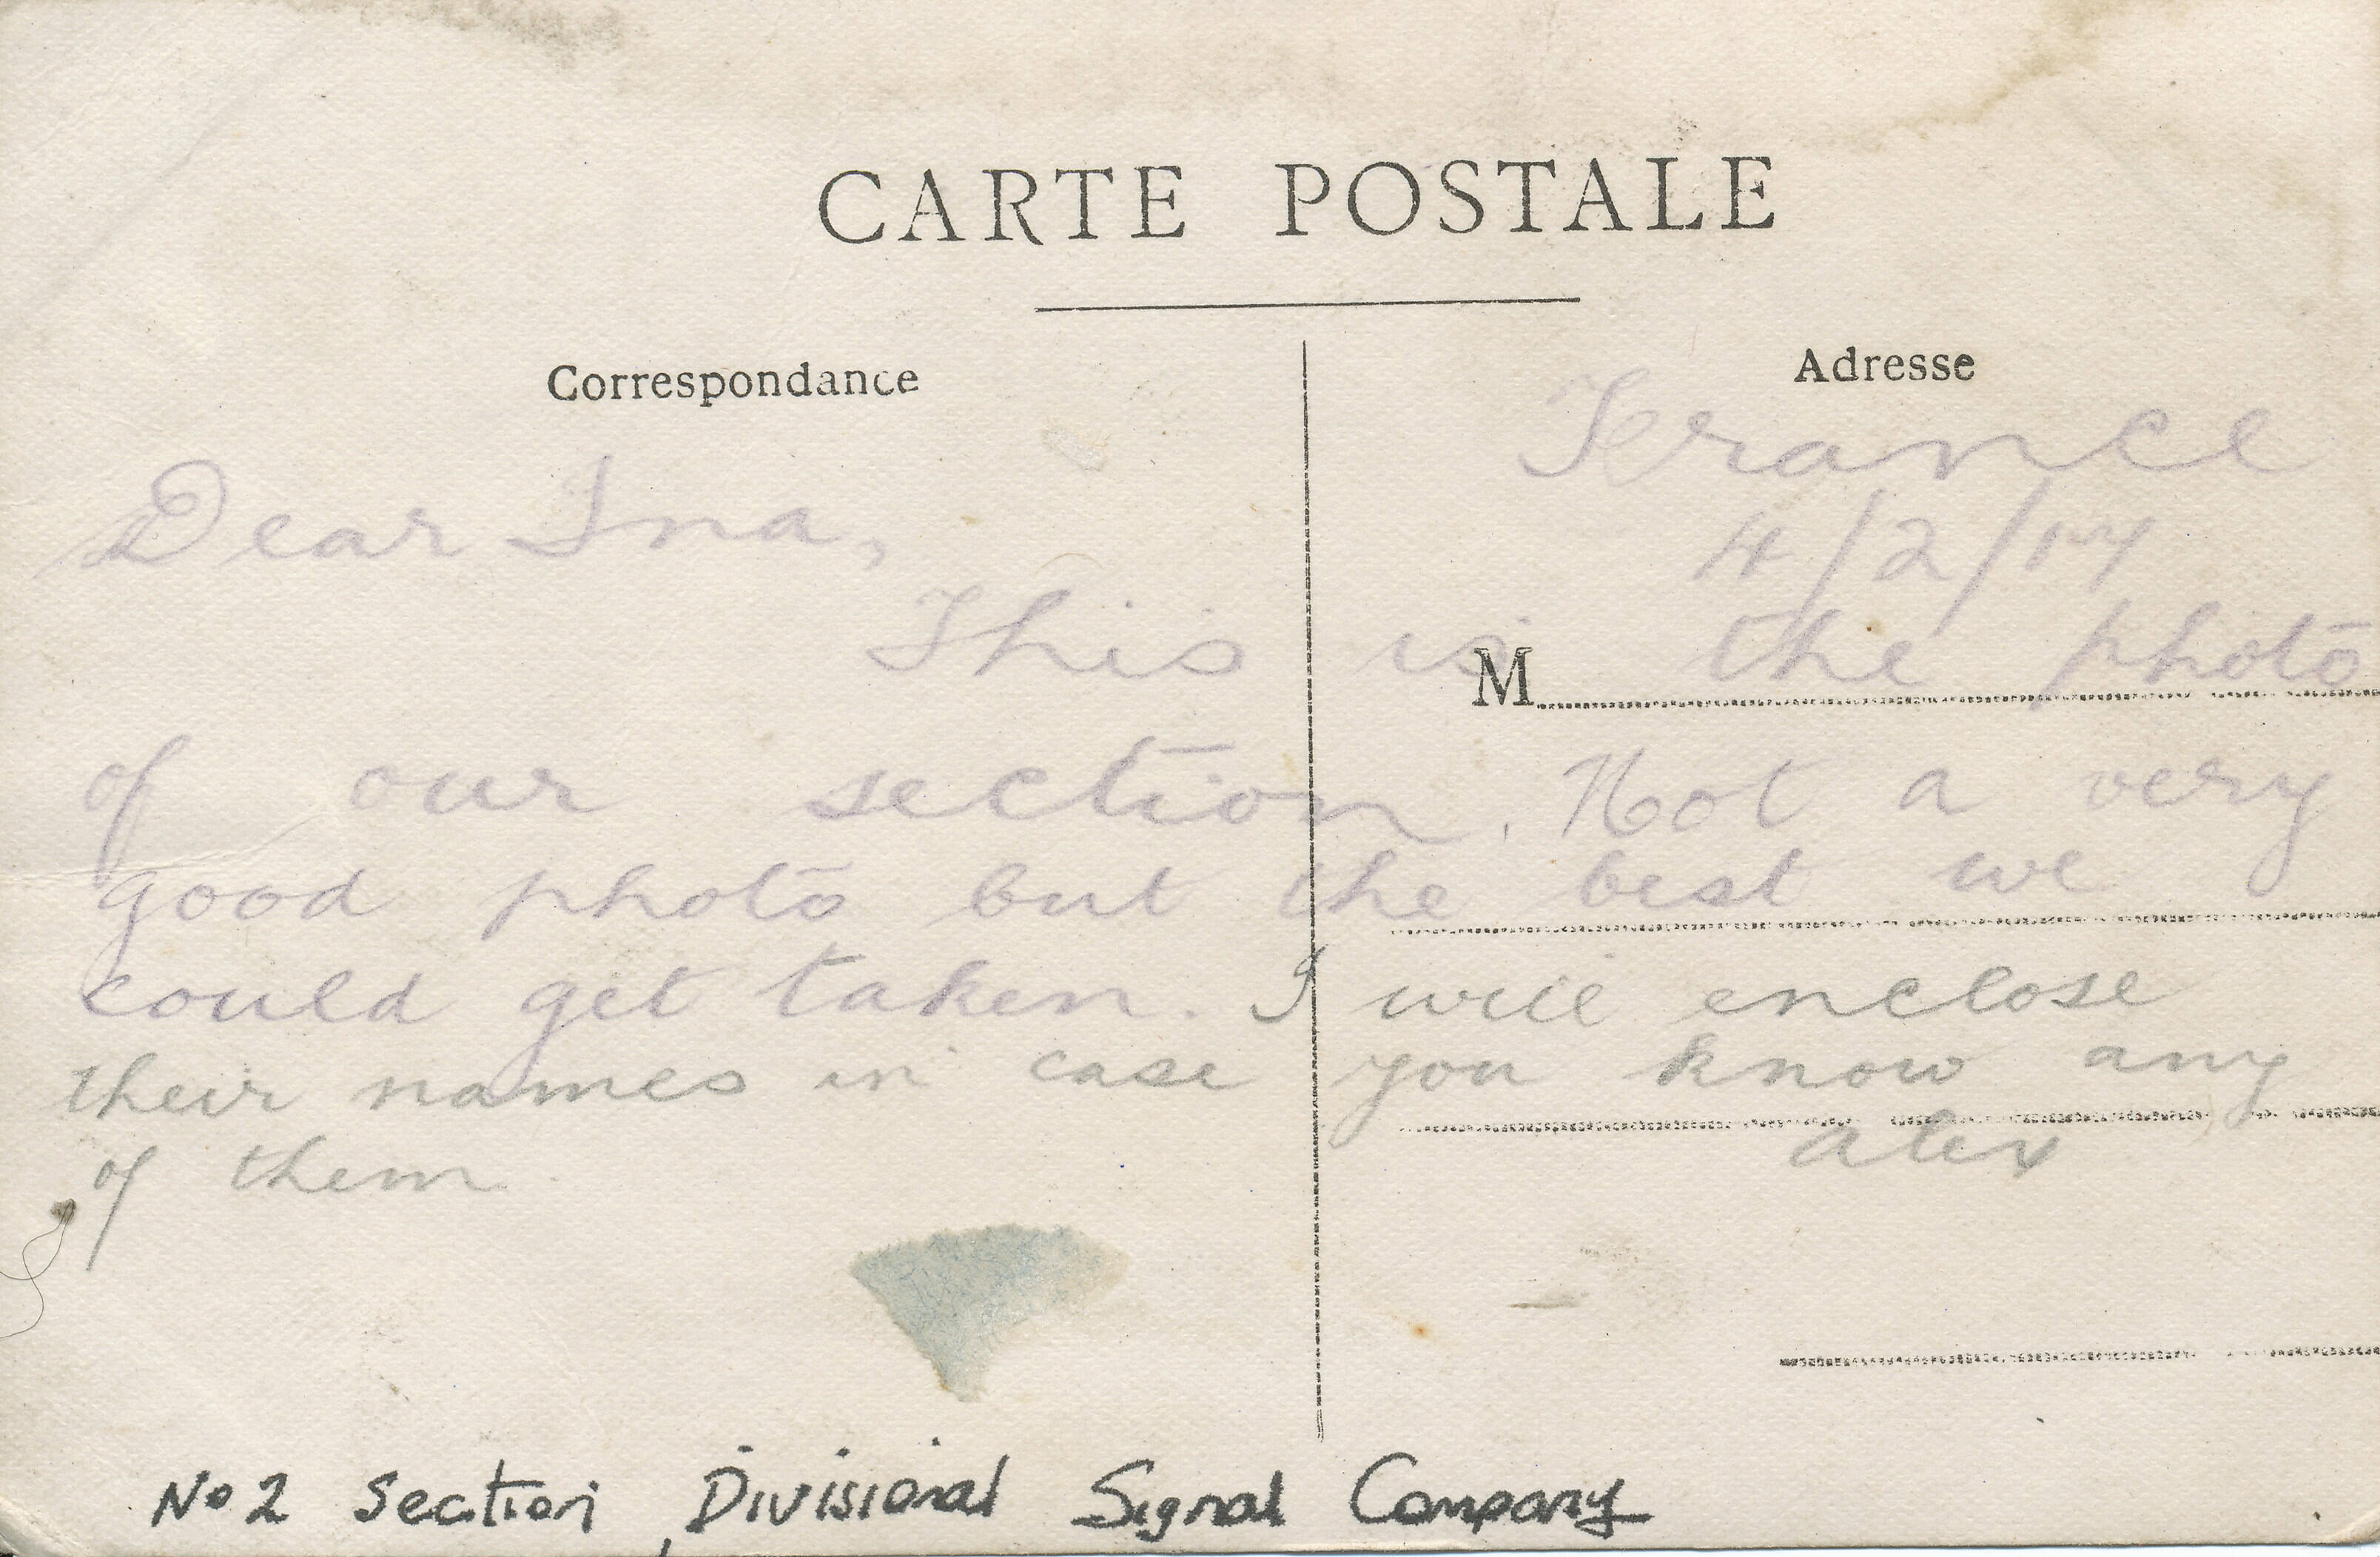 CARTE POSTALE
Correspondance
Adresse
France
4/2/17
Dear Ina,
This is the photo
M
of our section. Not a very
good photo but the best we
could get taken. I will enclose
their names in case you know any
of them.
Alex
No 2 Section, Divisional Signal Company